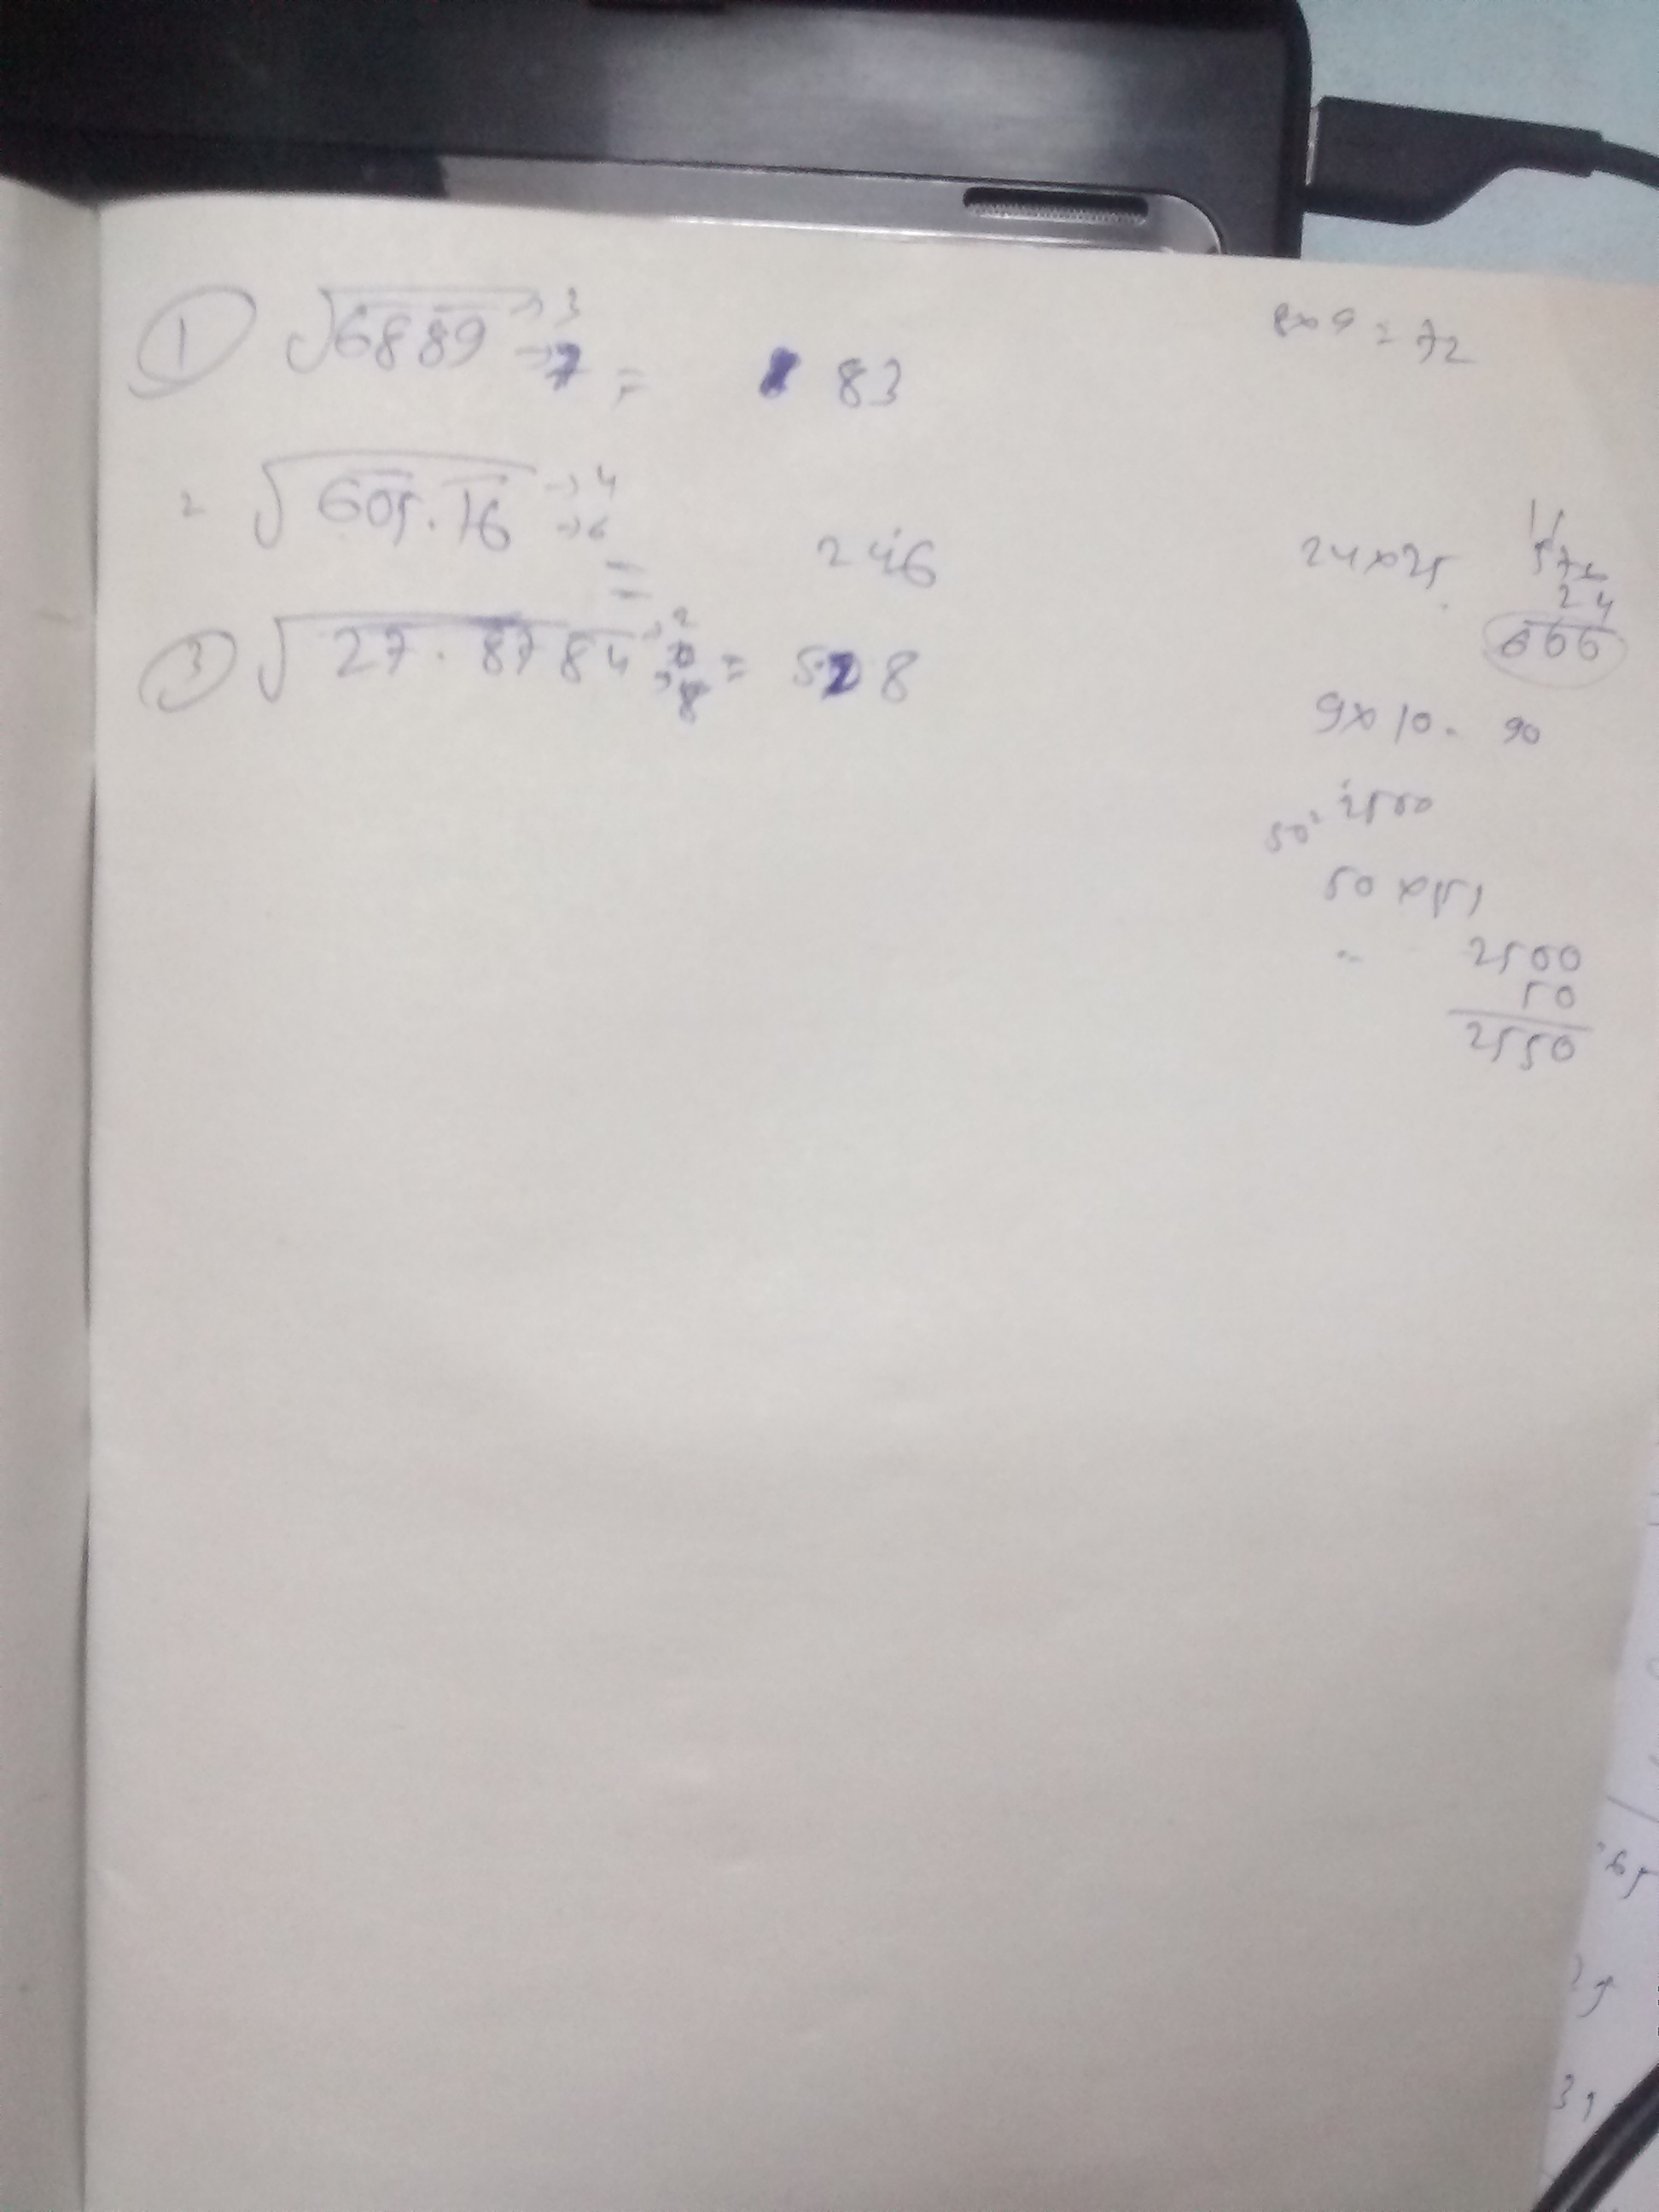 ① √6889 → 3
→ 7 = 83
2 √605.16 → 4
→ 6
= 246
③ √27.8784 → 2
→ 8 = 528
8×9 = 72
24×25.
24
600
9×10 = 90
50² 2500
50×51
= 2500
50
2550